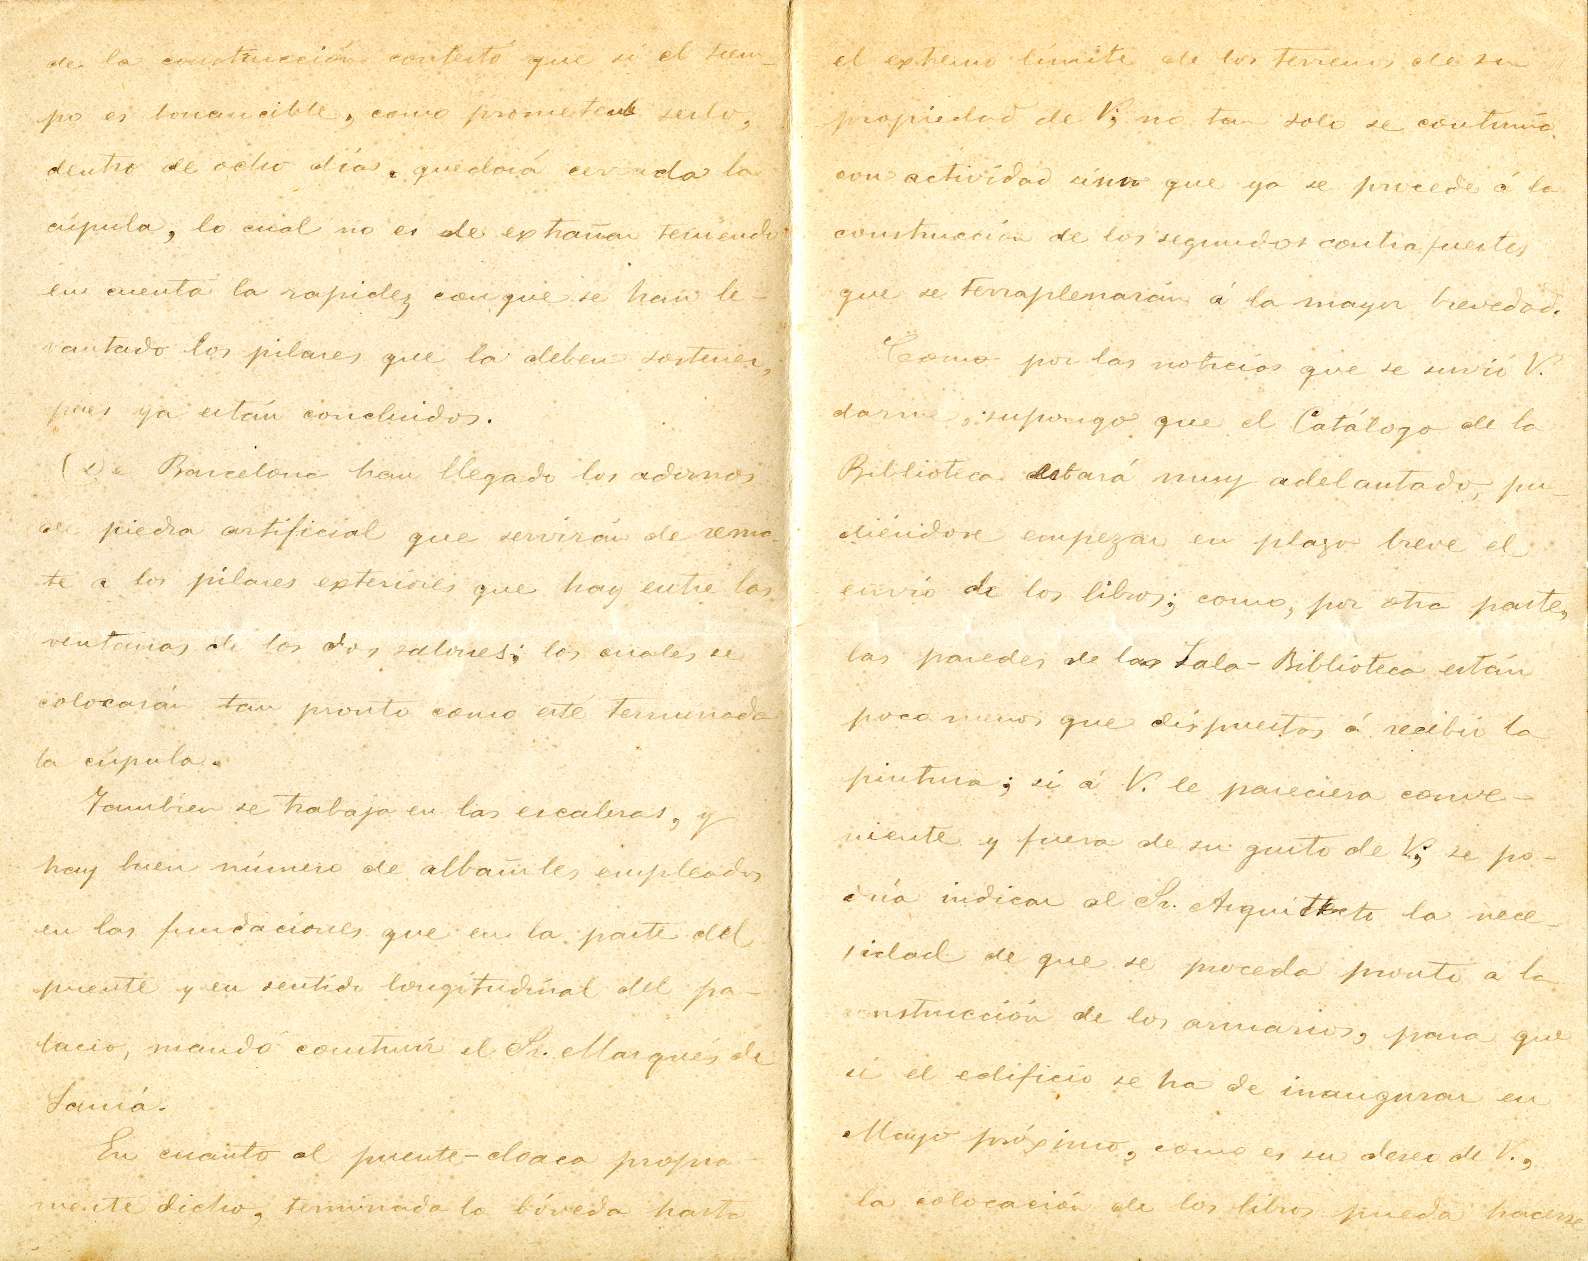 de la construcción contestó que si el tiem-
po es bonancible, como promete serlo,
dentro de ocho días, quedará cerrada la
cúpula, lo cual no es de extrañar teniendo
en cuenta la rapidez con que se han le-
vantado los pilares que la deben sostener,
pues ya están concluidos.
De Barcelona han llegado los adornos
de piedra artificial que servirán de rema-
te a los pilares exteriores que hay entre las
ventanas de los dos salones; los cuales se
colocarán tan pronto como esté terminada
la cúpula.
Tambien se trabaja en las escaleras, y
hay buen número de albañiles empleados
en las fundaciones que en la parte del
puente y en sentido longitudinal del pa-
lacio, mandó construir el Sr. Marqués de
Samá.
En cuanto al puente-cloaca propia-
mente dicho, terminada la bóveda hasta
el extremo límite de los terrenos de su
propiedad de V; no tan solo se continúa
con actividad sinó que ya se procede á la
construcción de los segundos contrafuertes
que se terraplenarán á la mayor brevedad.
Como por las noticias que se sirvió V.
darme, supongo que el Catálogo de la
Biblioteca estará muy adelantado, pu-
diéndose empezar en plazo breve el
envío de los libros; como, por otra parte,
las paredes de la Sala-Biblioteca están
poco menos que dispuestas á recibir la
pintura; si á V. le pareciera conve-
niente y fuera de su gusto de V; se po-
dría indicar al Sr. Arquitecto la nece-
sidad de que se proceda pronto a la
construcción de los armarios, para que
si el edificio se ha de inaugurar en
Mayo próximo, como es su deseo de V.,
la colocación de los libros pueda hacerse